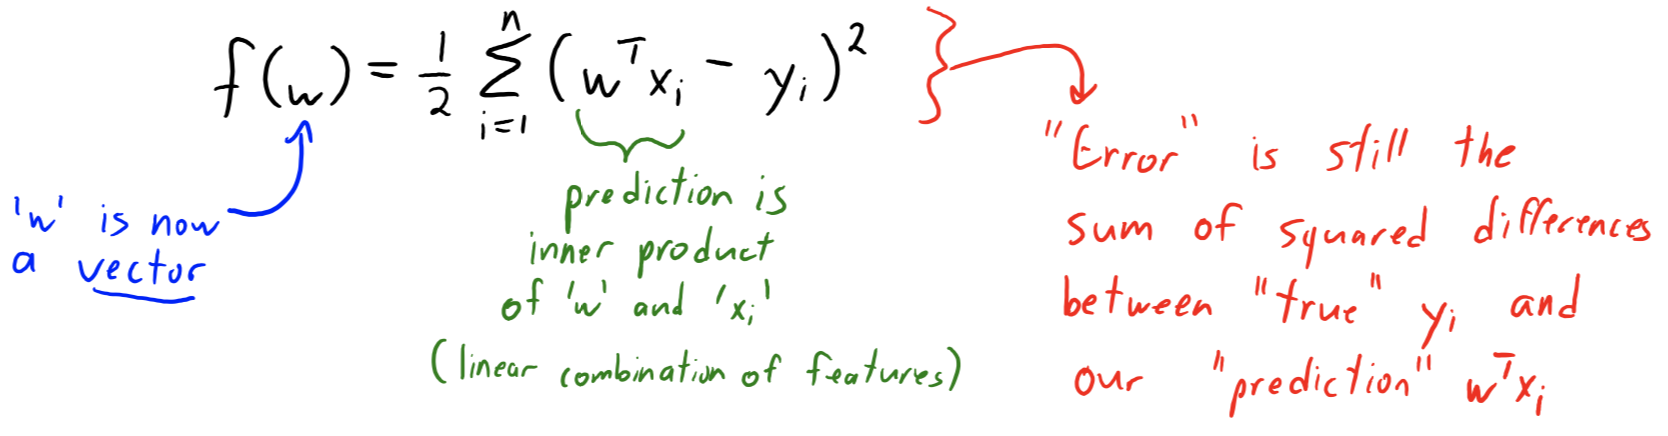 f(w) = 1/2 Σ_{i=1}^{n} (wᵀxᵢ - yᵢ)²
'w' is now
a vector
prediction is
inner product
of 'w' and 'xᵢ'
(linear combination of features)
"Error" is still the
sum of squared differences
between "true" yᵢ and
our "prediction" wᵀxᵢ